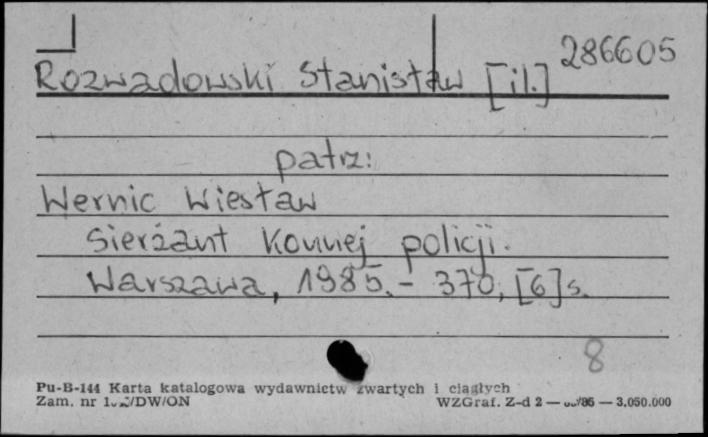 286605
Rozwadowski Stanisław [il.]
patrz:
Wernic Wiesław
Sierżant Konnej policji.
Warszawa, 1985. - 370, [6] s.
8
Pu-B-144 Karta katalogowa wydawnictw zwartych i ciągłych
Zam. nr /DW/ON WZGraf. Z-d 2 — /86 — 3.050.000